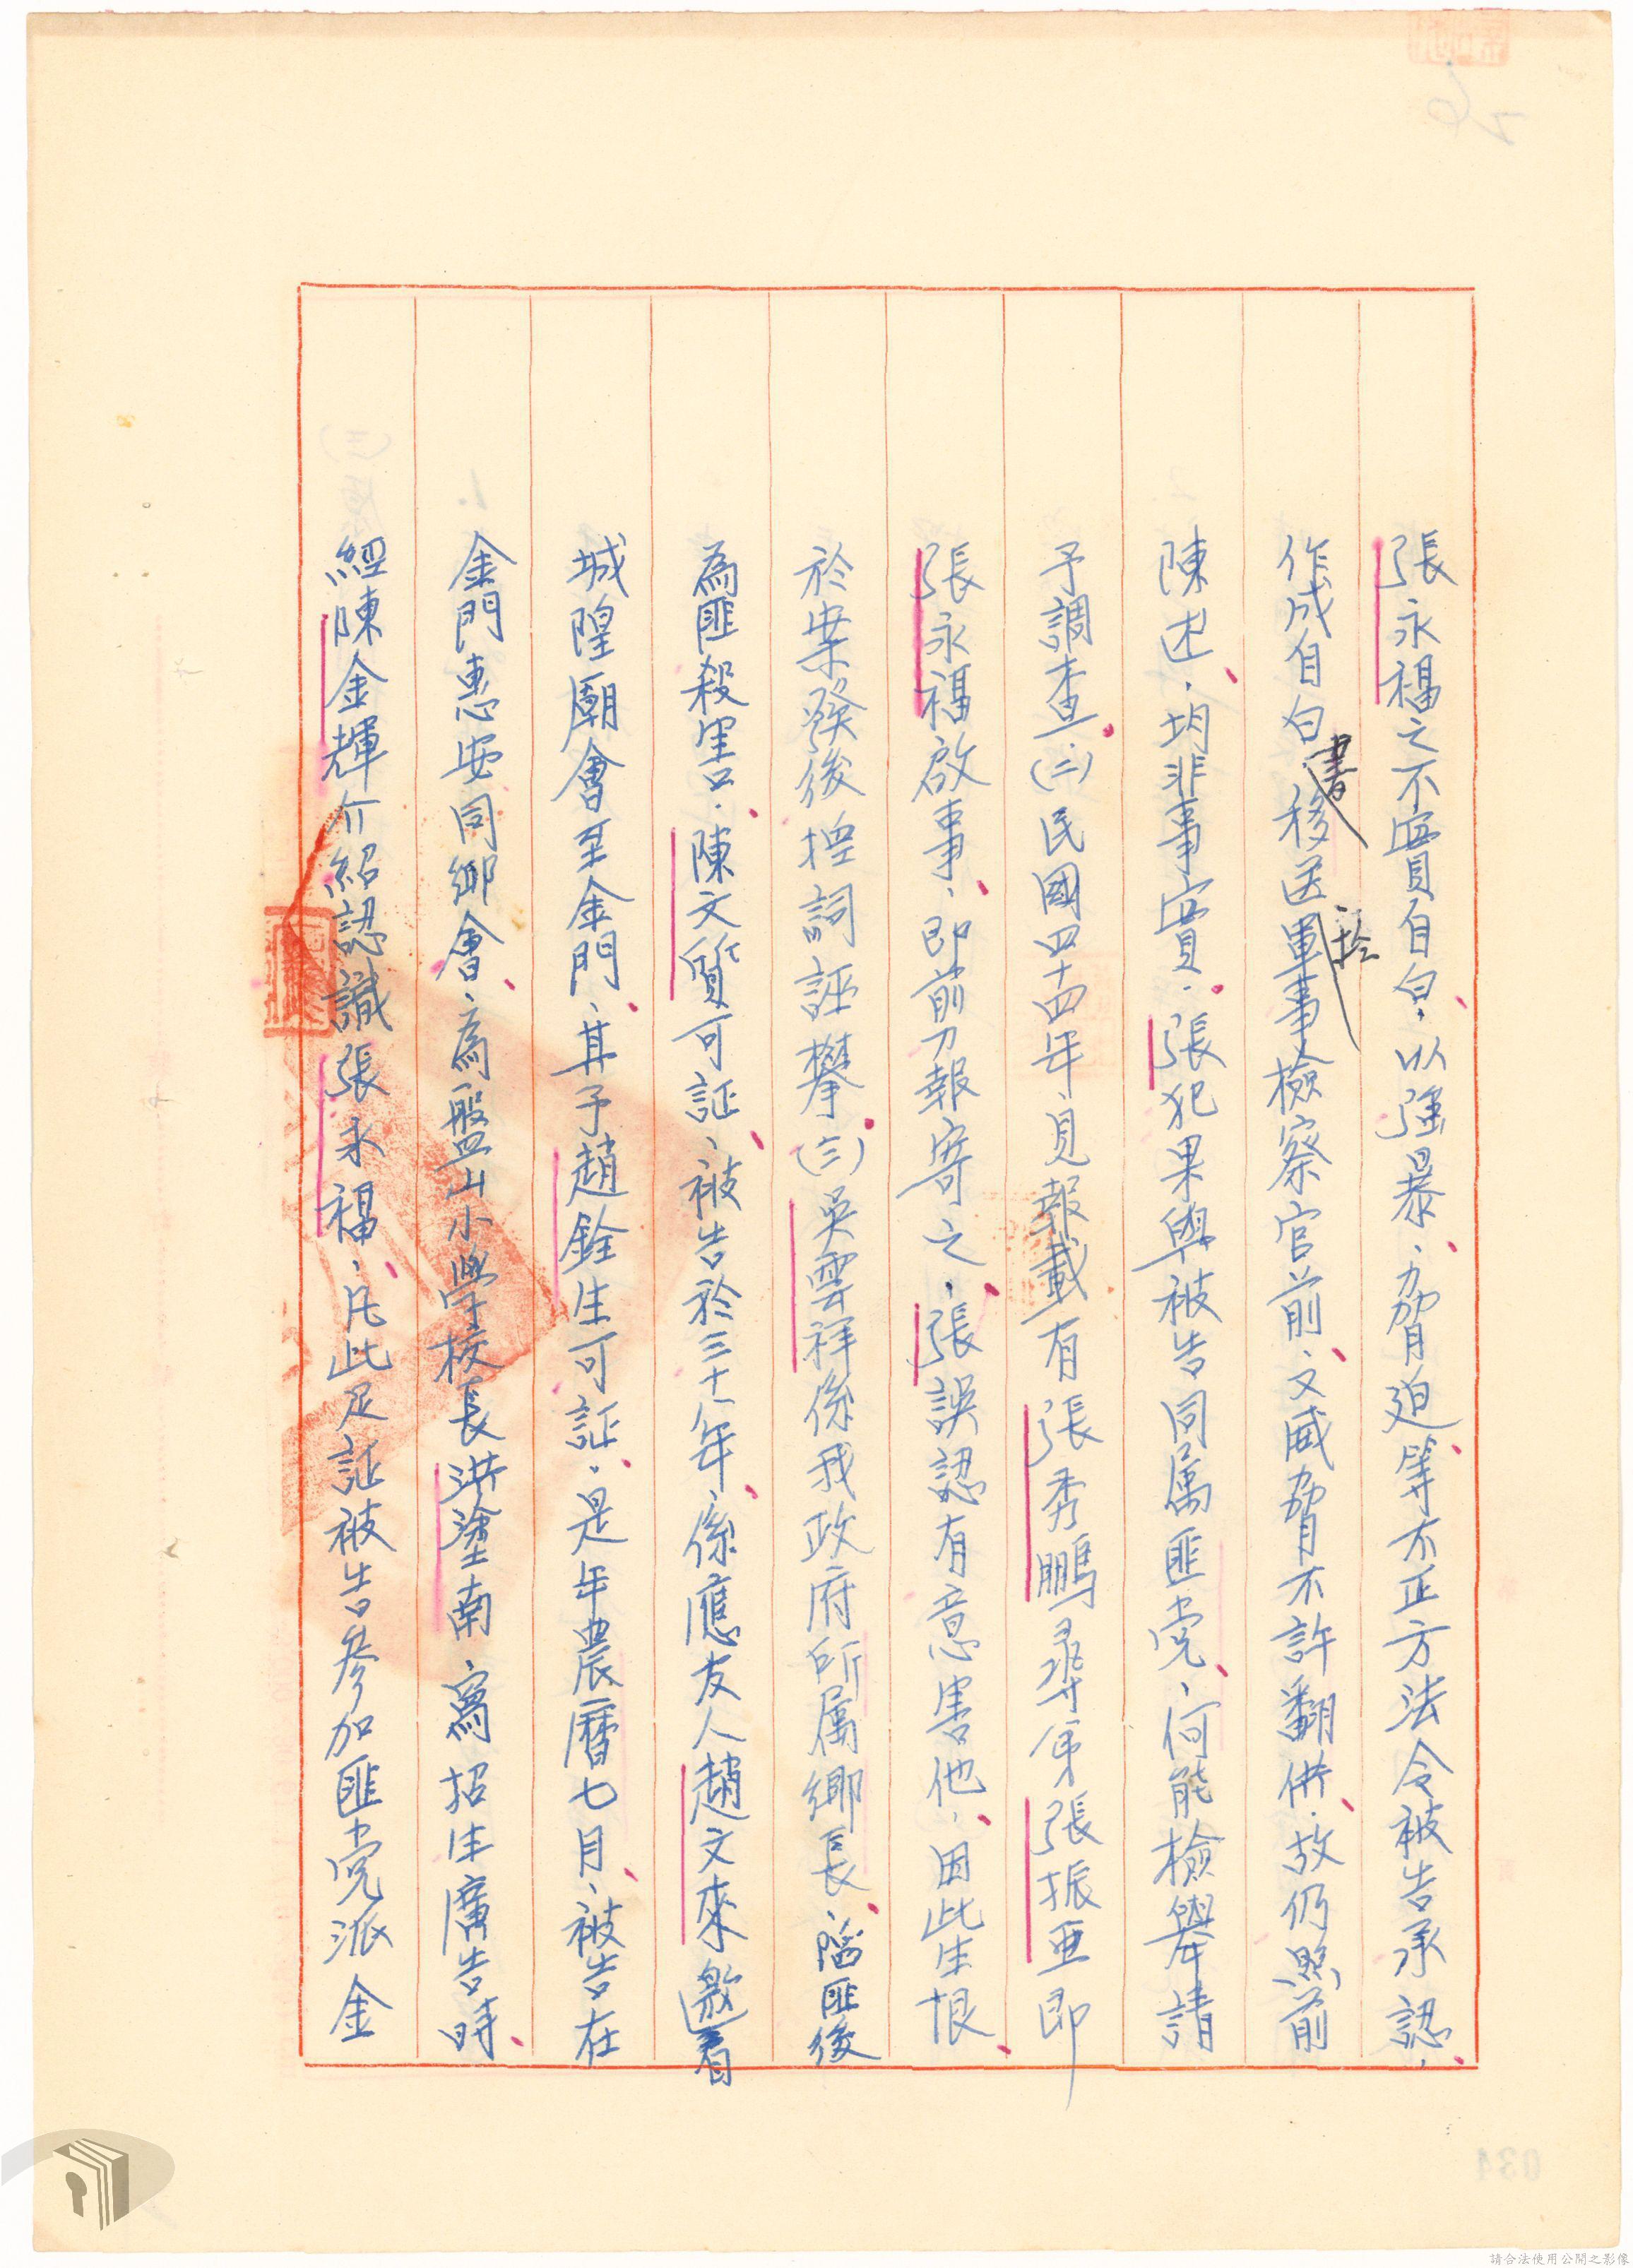 張永福之不實自白,以強暴、脅迫等不正方法令被告承認,
作成自白書移送,於軍事檢察官前,又威脅不許翻供,故仍照前
陳述,均非事實,張犯果與被告同屬匪党,何能檢舉請
予調查,(二)民國四十四年見報載有張秀鵬尋弟張振亜即
張永福啟事,即剪報寄之,張誤認有意害他,因此生恨,
於案發後揑詞誣攀,(三)吳雲祥係我政府所屬鄉長,陷匪後
為匪殺害,陳文質可証,被告於三十八年,係應友人趙文來邀看
城隍廟會至金門,其子趙銓生可証,是年農曆七月,被告在
金門惠安同鄉會,為盤山小學校長洪塗南寫招生廣告時,
經陳金輝介紹認識張永福,凡此足証被告參加匪党派金
請合法使用公開之影像